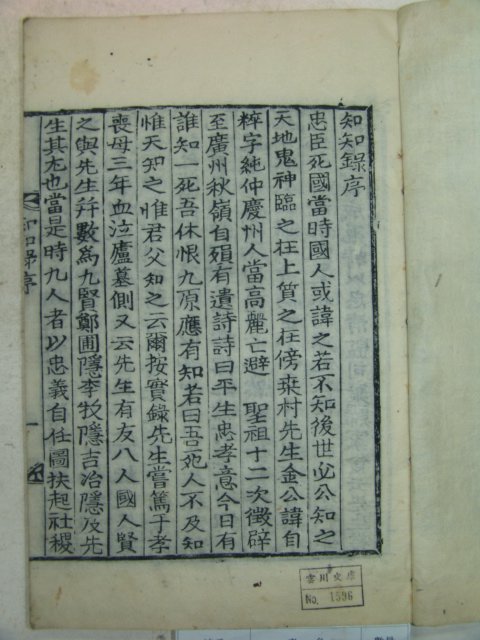 知知錄序
忠臣死國當時國人或諱之若不知後世必公知之
天地鬼神臨之在上質之在傍桒村先生金公諱自
粹字純仲慶州人當高麗亡避 聖祖十二次徵辟
至廣州秋嶺自殞有遺詩詩曰平生忠孝意今日有
誰知一死吾休恨九原應有知若曰吾死人不及知
惟天知之惟君父知之云爾按實錄先生嘗篤于孝
喪母三年血泣廬墓側又云先生有友八人國人賢
之與先生幷數為九賢鄭圃隱李牧隱吉冶隱及先
生其尤也當是時九人者以忠義自任圖扶起社稷
知知錄序 一
雲川文庫
No. 1596